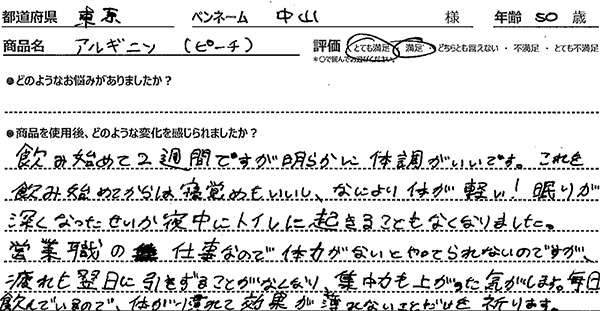 都道府県 東京 ペンネーム 中山 様 年齢 50 歳
商品名 アルギニン (ピーチ) 評価 とても満足・満足・どちらとも言えない・不満足・とても不満足
*○で囲んでお選びください。
●どのようなお悩みがありましたか?
●商品を使用後、どのような変化を感じられましたか?
飲み始めて2週間ですが明らかに体調がいいです。これを
飲み始めてからは寝覚めもいいし、なにより体が軽い!眠りが
深くなったせいか夜中にトイレに起きることもなくなりました。
営業職の仕事なので体力がないとやってられないのですが、
疲れも翌日に引きずることがなくなり、集中力も上がった気がします。毎日
飲んでいるので、体が慣れて効果が薄れないことだけを祈ります。